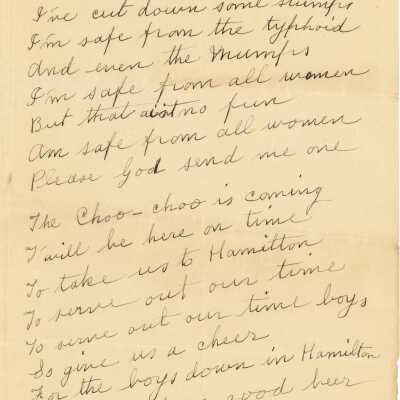 I've cut down some stumps
I'm safe from the typhoid
And even the Mumps
I'm safe from all women
But that aint no fun
Am safe from all women
Please God send me one
The Choo-choo is coming
T'will be here on time
To take us to Hamilton
To serve out our time
To serve out our time boys
So give us a cheer
For the boys down in Hamilton
good beer